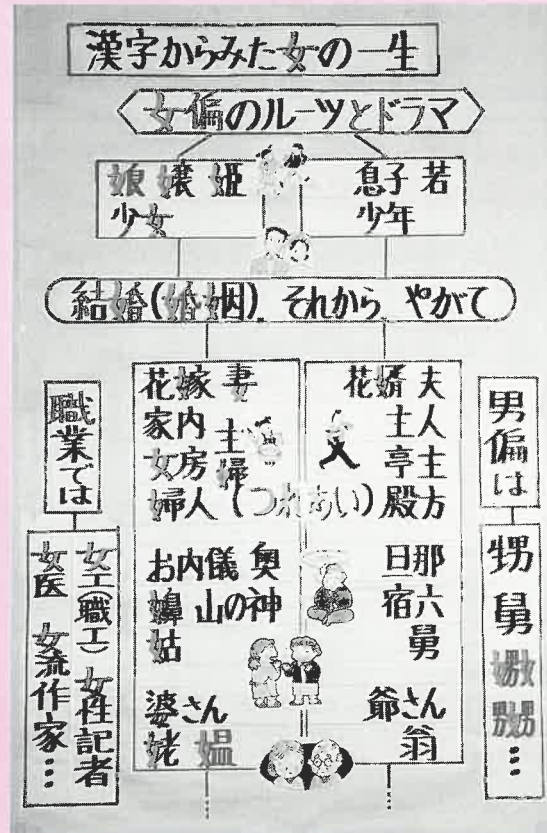 漢字からみた女の一生
女偏のルーツとドラマ
娘 嬢 姫
少女
息子 若
少年
結婚(婚姻) それから やがて
職業では
女工(職工) 女性記者
女医 女流作家…
花嫁 妻
家内 主婦
女房
婦人
(つれあい)
お内儀 奥
嬶 山の神
姑
婆さん
姥 媼
花婿 夫
主人
亭主
殿方
旦那
宿六
舅
爺さん
翁
男偏は
甥 舅 嫐 嬲…